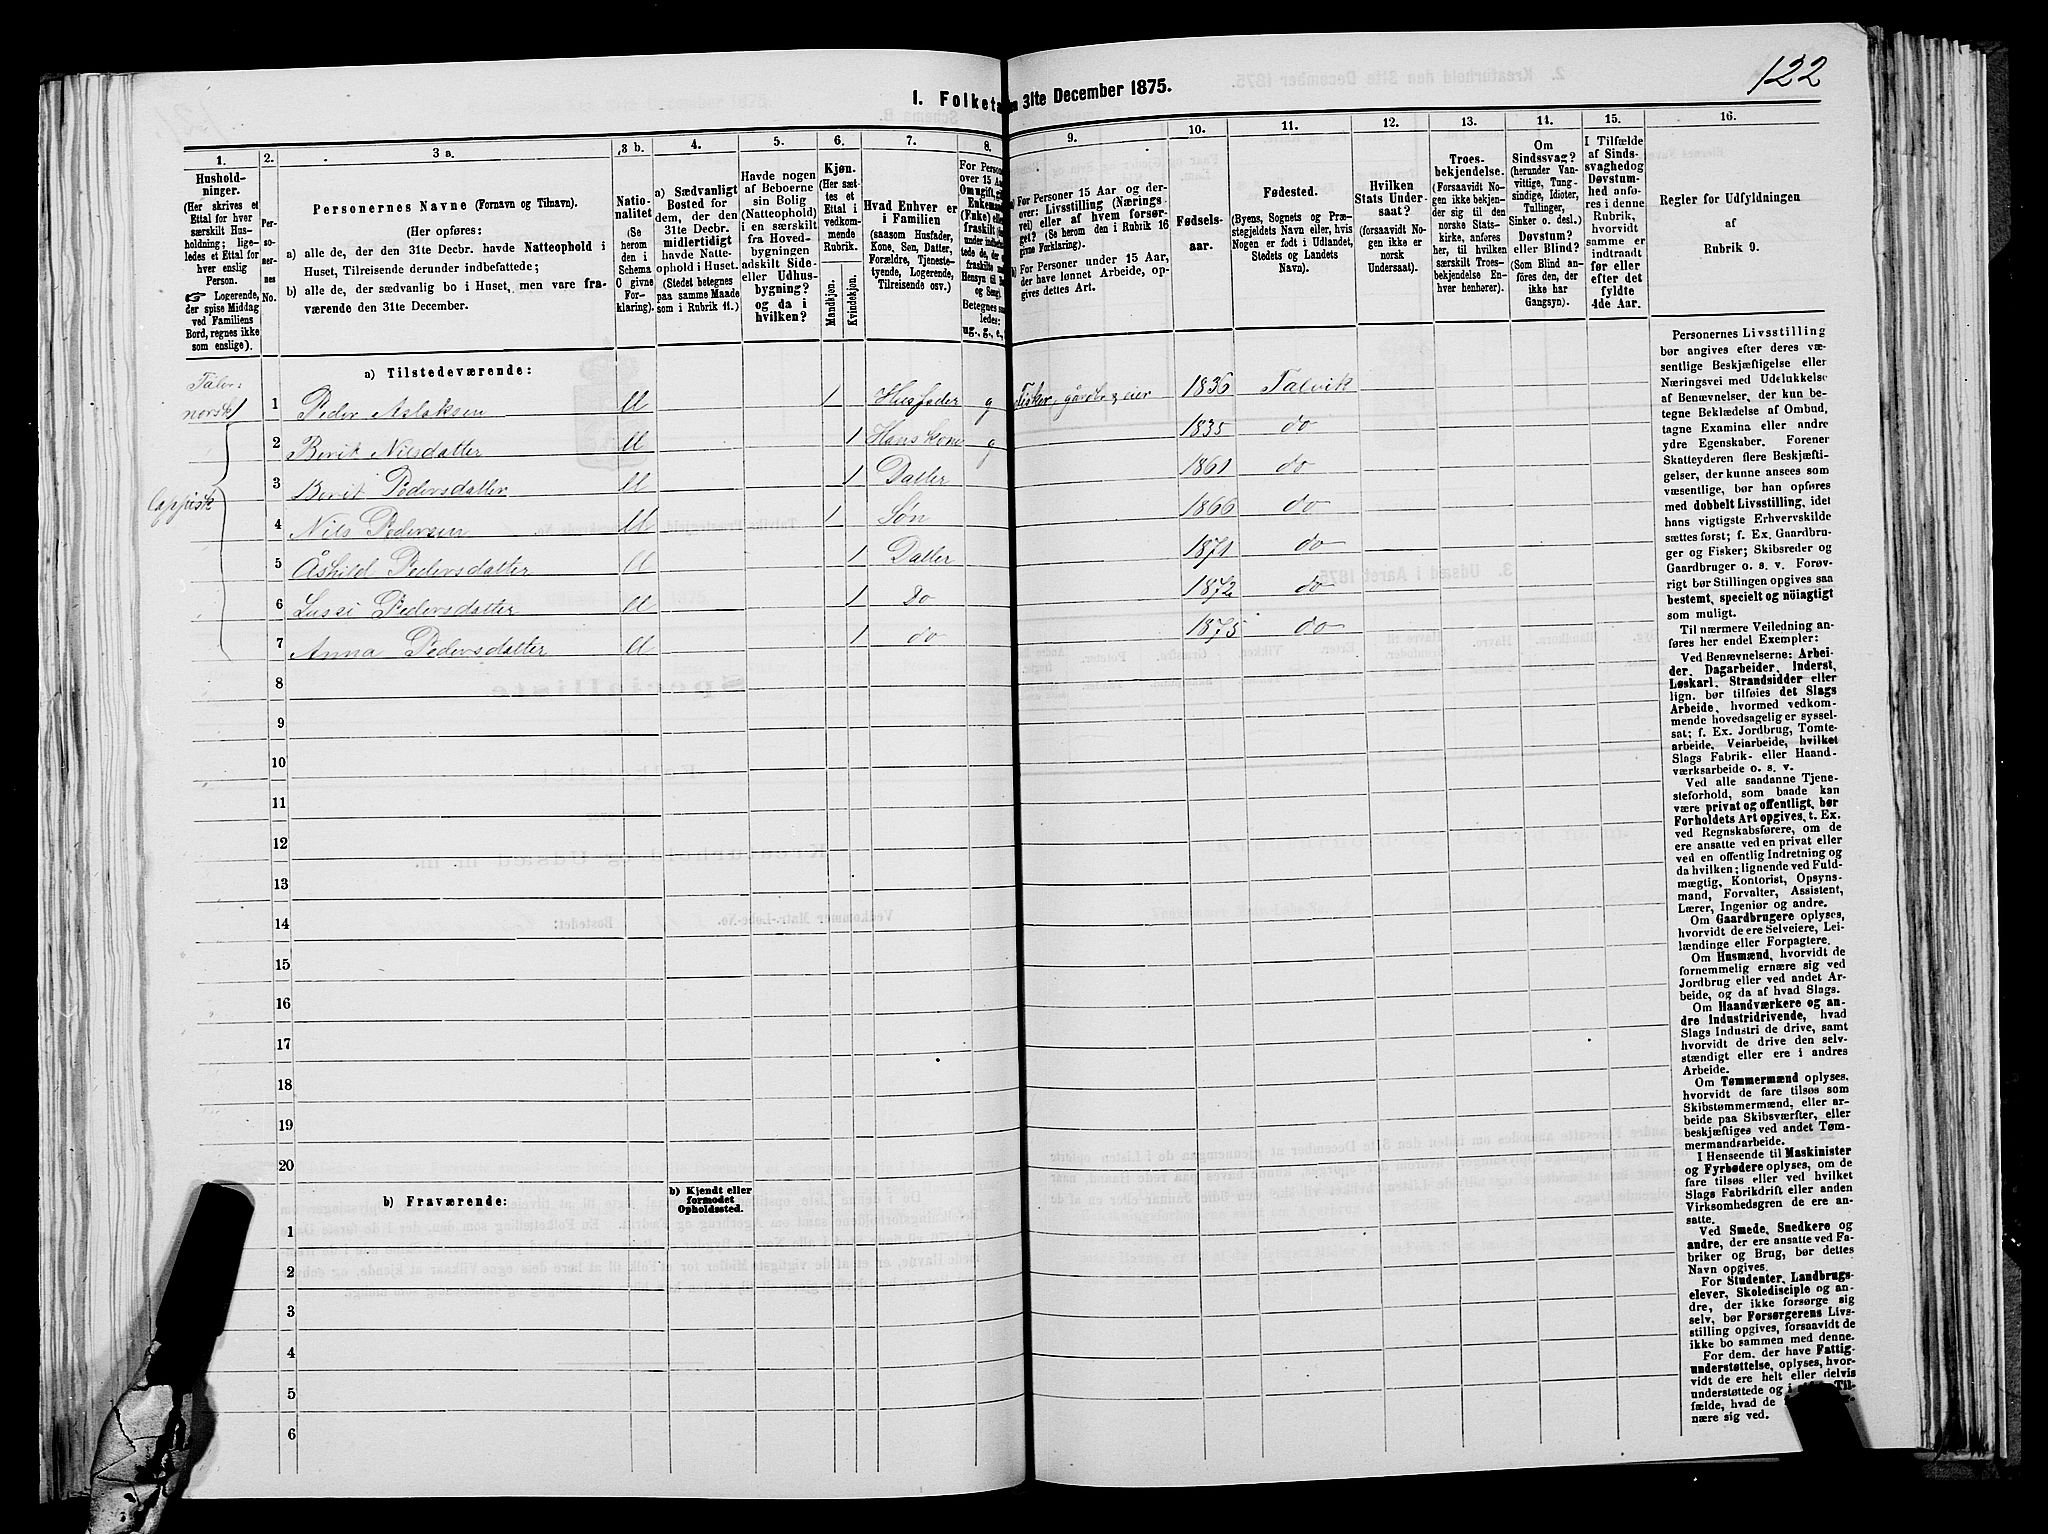 122
I. Folketa
n 31te December 1875.
1.
2.
3 a.
3 b.
4.
5.
6.
7.
8.
9.
10.
11.
12.
13.
14.
15.
16.
Hushold-
ninger.
(Her skrives et
Ettal for hver
særskilt Hus-
holdning; lige-
ledes et Ettal for
hver enslig
Person.
☞ Logerende,
der spise Middag
ved Familiens
Bord, regnes ikke
som enslige).
Per-
so-
ner-
nes
No.
Personernes Navne (Fornavn og Tilnavn).
(Her opføres:
a) alle de, der den 31te Decbr. havde Natteophold i
Huset, Tilreisende derunder indbefattede;
b) alle de, der sædvanlig bo i Huset, men vare fra-
værende den 31te December.
Natio-
nalitet
(Se
herom
den i
Schema
C givne
For-
klaring).
a) Sædvanligt
Bosted for
dem, der den
31te Decbr.
midlertidigt
havde Natte-
ophold i Huset.
(Stedet betegnes
paa samme Maade
som i Rubrik 11.)
Havde nogen
af Beboerne
sin Bolig
(Natteophold)
i en særskilt
fra Hoved-
bygningen
adskilt Side-
eller Udhus-
bygning?
og da i
hvilken?
Kjøn.
(Her sæt-
tes et
Ettal i
vedkom-
mende
Rubrik.
Mandkjøn.
Kvindekjøn.
Hvad Enhver er
i Familien
(saasom Husfader,
Kone, Søn, Datter,
Forældre, Tjeneste-
tyende, Logerende,
Tilreisende osv.)
For Person
over 15 Aa
Omugift, gi
Enkeman
(Enke) elle
fraskilt (
Betegnes saa
ledes:
ug., g., e.,
a) For Personer 15 Aar og der-
over: Livsstilling (Nærings-
vei) eller af hvem forsør-
get? (Se herom den i Rubrik 16
givne Forklaring).
b) For Personer under 15 Aar,
der have lønnet Arbeide, op-
gives dettes Art.
Fødsels-
aar.
Fødested.
(Byens, Sognets og Præ-
stegjeldets Navn eller, hvis
Nogen er født i Udlandet,
Stedets og Landets
Navn).
Hvilken
Stats Under-
saat?
(forsaavidt No-
gen ikke er
norsk
Undersaat).
Troes-
bekjendelse.
(Forsaavidt No-
gen ikke bekjen-
der sig til den
norske Stats-
kirke, anføres
her, til hvilken
særskilt Troes-
bekjendelse En-
hver henhører).
Om
Sindssvag?
(herunder Van-
vittige, Tung-
sindige, Idioter,
Tullinger,
Sinker o. desl.)
Døvstum?
eller Blind?
(Som Blind an-
føres den, der
ikke har
Gangsyn).
I Tilfælde
af Sinds-
svaghedog
Døvstum-
hed anfø-
res i denne
Rubrik,
hvorvidt
samme er
indtraadt
før eller
efter det
fyldte
4de Aar.
Regler for Udfyldningen
af
Rubrik 9.
a) Tilstedeværende:
norsk 1
Lappisk
1 Peder Aslaksen ll 1 Husfader g Fisker, gårdbr., eier 1836 Talvik
2 Berit Nilsdatter ll 1 Hans kone g 1835 do
3 Berit Pedersdatter ll 1 Datter 1861 do
4 Nils Pedersen ll 1 Søn 1866 do
5 Åshild Pedersdatter ll 1 Datter 1871 do
6 Lussi Pedersdatter ll 1 Do 1872 do
7 Anna Pedersdatter ll 1 do 1875 do
8
9
10
11
12
13
14
15
16
17
18
19
20
b) Fraværende:
b) Kjendt eller
formodet
Opholdssted.
1
2
3
4
5
6
Personernes Livsstilling
bør angives efter deres væ-
sentlige Beskjæftigelse eller
Næringsvei med Udelukkelse
af Benævnelser, der kun be-
tegne Beklædelse af Ombud,
tagne Examina eller andre
ydre Egenskaber. Forener
Skatteyderen flere Beskjæfti-
gelser, der kunne ansees som
væsentlige, bør han opføres
med dobbelt Livsstilling, idet
hans vigtigste Erhvervskilde
sættes først; f. Ex. Gaardbru-
ger og Fisker; Skibsreder og
Gaardbruger o. s. v. Forøv-
rigt bør Stillingen opgives saa
bestemt, specielt og nøiagtigt
som muligt.
Til nærmere Veiledning an-
føres her endel Exempler:
Ved Benævnelserne: Arbei-
der, Dagarbeider, Inderst,
Løskarl, Strandsidder eller
lign. bør tilføies det Slags
Arbeide, hvormed vedkom-
mende hovedsagelig er syssel-
sat; f. Ex. Jordbrug, Tomte-
arbeide, Veiarbeide, hvilket
Slags Fabrik- eller Haand-
værksarbeide o. s. v.
Ved alle saadanne Tjene-
steforhold, som baade kan
være privat og offentligt, bør
Forholdets Art opgives, t. Ex.
ved Regnskabsførere, om de
ere ansatte ved en privat eller
ved en offentlig Indretning og
da hvilken; lignende ved Fuld-
mægtig, Kontorist, Opsyns-
mand, Forvalter, Assistent,
Lærer, Ingeniør og andre.
Om Gaardbrugere oplyses,
hvorvidt de ere Selveiere, Lei-
lændinge eller Forpagtere.
Om Husmænd, hvorvidt de
fornemmelig ernære sig ved
Jordbrug eller ved andet Ar-
beide, og da af hvad Slags.
Om Haandværkere og an-
dre Industridrivende, hvad
Slags Industri de drive, samt
hvorvidt de drive den selv-
stændigt eller ere i andres
Arbeide.
Om Tømmermænd oplyses,
hvorvidt de fare tilsøs som
Skibstømmermænd, eller ar-
beide paa Skibsværfter, eller
beskjæftiges ved andet Tøm-
mermandsarbeide.
I Henseende til Maskinister
og Fyrbødere oplyses, om de
fare tilsøs eller ved hvilket
Slags Fabrikdrift eller anden
Virksomhedsgren de ere an-
satte.
Ved Smede, Snedkere og
andre, der ere ansatte ved Fa-
briker og Brug, bør dettes
Navn opgives.
For Studenter, Landbrugs-
elever, Skoledisciple og an-
dre, der ikke forsørge sig
selv, bør Forsørgerens Livs-
stilling opgives, forsaavidt de
ikke bo sammen med denne.
For dem, der have Fattig-
understøttelse, oplyses, hvor-
vidt de ere helt eller delvis
understøttede og i Til-
fælde, hvad de
nære sig ved.